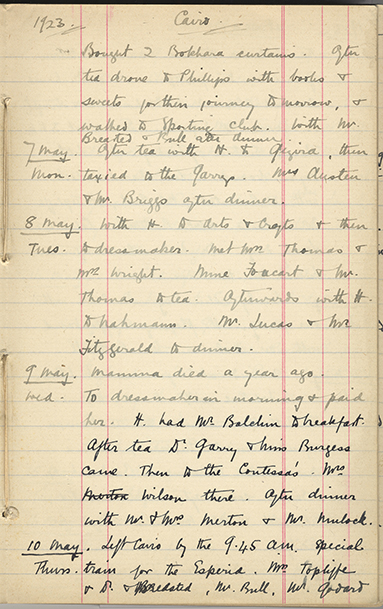 1923. Cairo.
Bought 2 Bokhara curtains. After
tea drove to Phillips with books &
sweets for their journey tomorrow, &
walked to Sporting Club. With Mr.
Breasted & Bull after dinner.
7 May. After tea with H. to Gezira, then
Mon. taxied to the Garrys. Mrs Austen
& Mr. Briggs after dinner.
8 May. With H. to Arts & Crafts & then
Tues. to dressmaker. Met Mrs Thomas &
Mrs Wright. Mme Foucart & Mr.
Thomas to tea. Afterwards with H.
to Nahmann. Mr. Lucas & Mr.
Fitzgerald to dinner.
9 May. Mamma died a year ago.
Wed. To dressmaker in morning & paid
her. H. had Mr. Baldwin to breakfast.
After tea Dr. Garry & Miss Burgess
came. Then to the Contessa's. Mrs
Wilson there. After dinner
with Mr. & Mrs Merton & Mr. Mulock.
10 May. Left Cairo by the 9.45 a.m. special
Thurs. train for the Esperia. Mrs
& Dr. Breasted, Mr. Bull, Mr. Godard